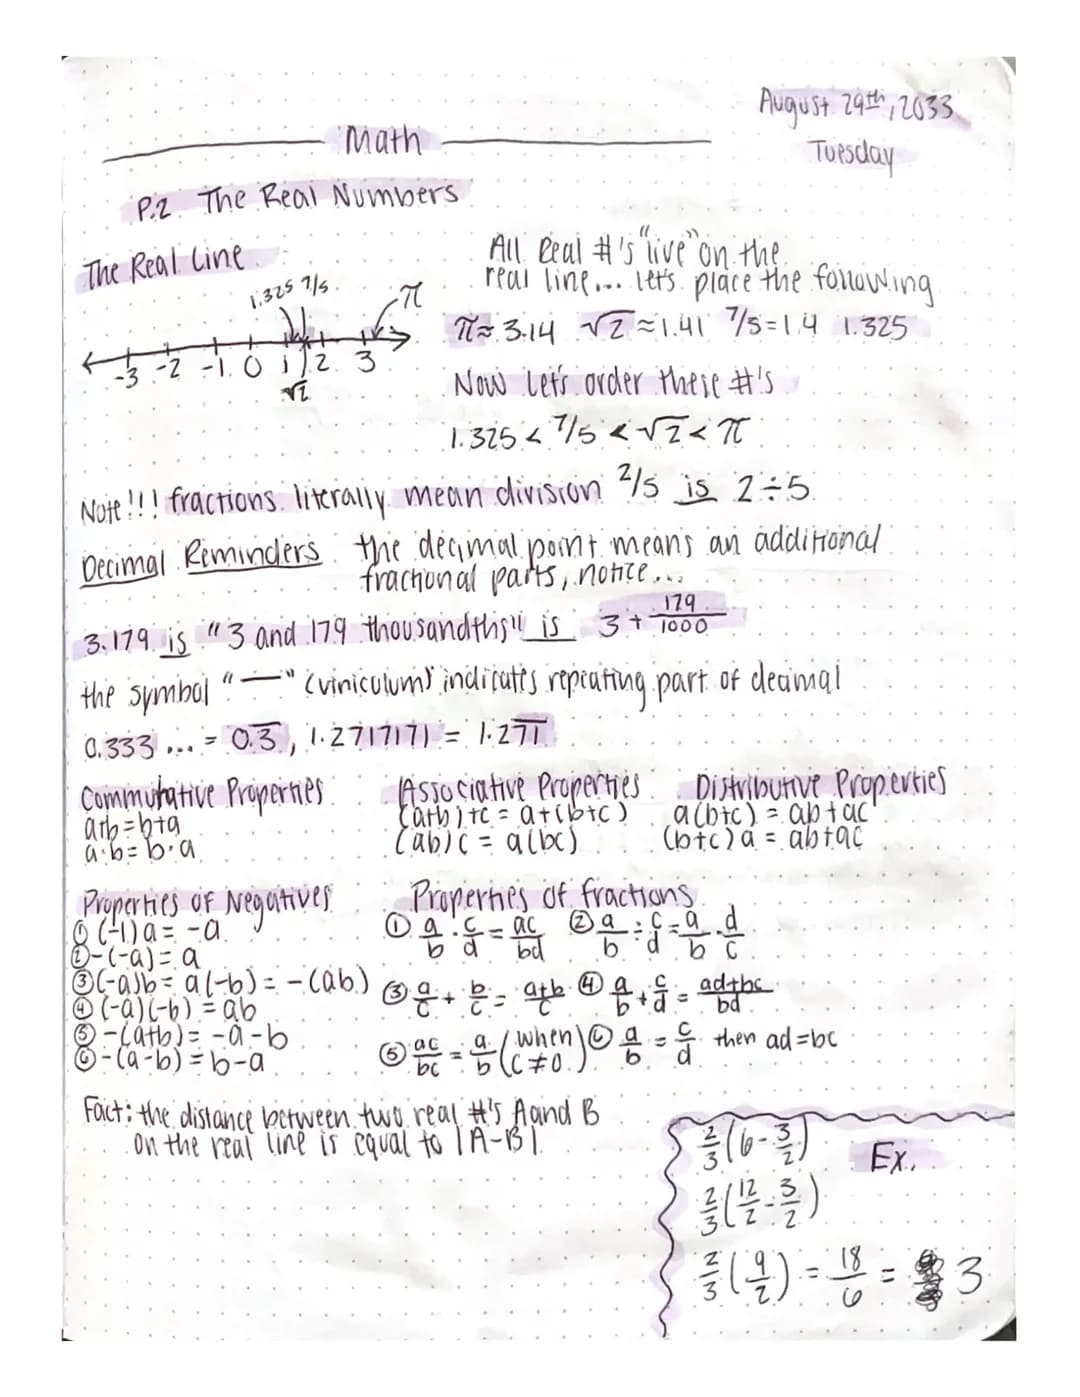 August 29th, 2033
Math
Tuesday
P.2 The Real Numbers
The Real Line
1.325 7/5
π
-3 -2 -1 0 1 2 3
√2
All Real #'s "live" on the
real line... let's place the following
π≈3.14 √2≈1.41 7/5=1.4 1.325
Now let's order these #'s
1.325 < 7/5 < √2 < π
Note!!! fractions literally mean division 2/5 is 2÷5
Decimal Reminders the decimal point means an additional
fractional parts, notice...
3.179 is "3 and 179 thousandths" is 3 + 179/1000
the symbol "—" (viniculum) indicates repeating part of decimal
0.333... = 0.3̅, 1.2717171 = 1.27̅1̅
Commutative Properties
a+b=b+a
a·b=b·a
Associative Properties
(a+b)+c = a+(b+c)
(ab)c = a(bc)
Distributive Properties
a(b+c) = ab+ac
(b+c)a = ab+ac
Properties of Negatives
① (-1)a = -a
② -(-a) = a
③ (-a)b = a(-b) = -(ab)
④ (-a)(-b) = ab
⑤ -(a+b) = -a-b
⑥ -(a-b) = b-a
Properties of fractions
① a/b · c/d = ac/bd ② a/b ÷ c/d = a/b · d/c
③ a/c + b/c = a+b/c ④ a/b + c/d = ad+bc/bd
⑤ ac/bc = a/b (when c≠0) ⑥ a/b = c/d then ad=bc
Fact: the distance between two real #'s A and B
on the real line is equal to |A-B|
Ex.
2/3(6-3/2)
2/3(12/2-3/2)
2/3(9/2) = 18/6 = 3